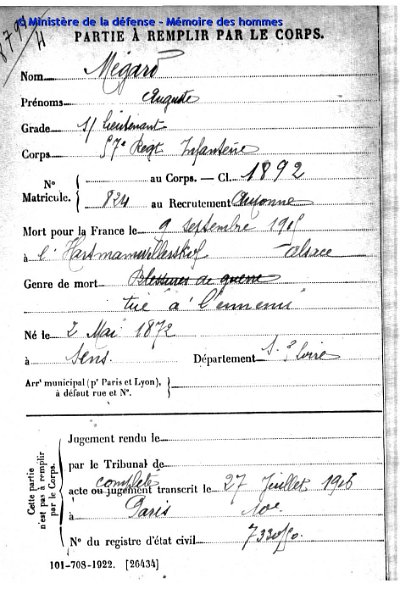 © Ministère de la défense - Mémoire des hommes
PARTIE À REMPLIR PAR LE CORPS.
Nom Mégard
Prénoms Auguste
Grade S/ Lieutenant
Corps 57e Regt Infanterie
N° Matricule. au Corps. — Cl. 1892
824 au Recrutement Auxonne
Mort pour la France le 9 septembre 1915
à l'Hartmannwillerskopf Alsace
Genre de mort Blessures de guerre
tué à l'ennemi
Né le 2 Mai 1872
à Sens. Département S. & Loire
Arrt municipal (pr Paris et Lyon),
à défaut rue et N°.
Cette partie n'est pas à remplir par le Corps.
Jugement rendu le
par le Tribunal de
complété
acte ou jugement transcrit le 27 Juillet 1916
à Paris 10e
N° du registre d'état civil
101-708-1922. [26434]